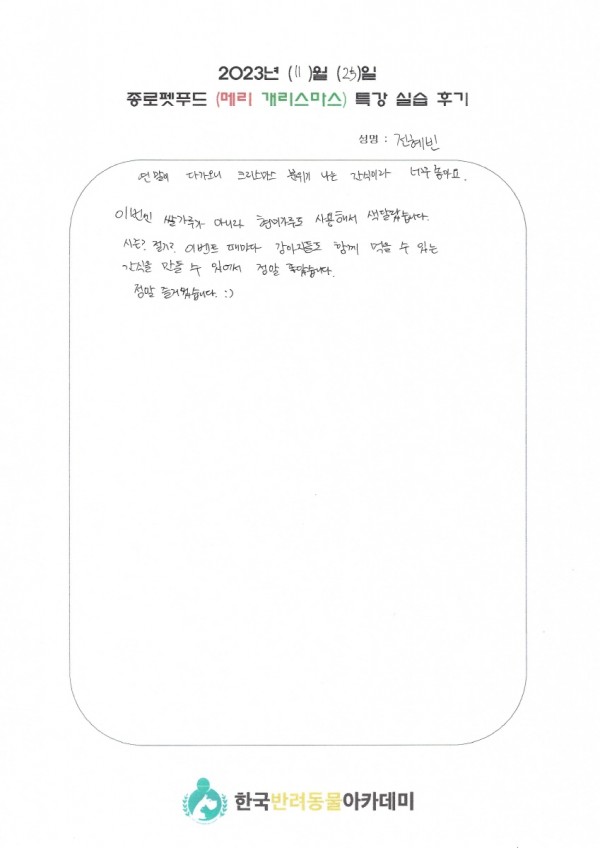 2023년 (11)월 (25)일
종로펫푸드 (메리 개리스마스) 특강 실습 후기
성명 : 전혜빈
연말에 다가오니 크리스마스 분위기 나는 간식이라 너무 좋아요.
이번엔 쌀가루가 아니라 현미가루도 사용해서 색달랐습니다.
시즌? 절기? 이벤트 때마다 강아지들도 함께 먹을 수 있는
간식을 만들 수 있어서 정말 좋답습니다.
정말 즐거웠습니다. :)
한국반려동물아카데미